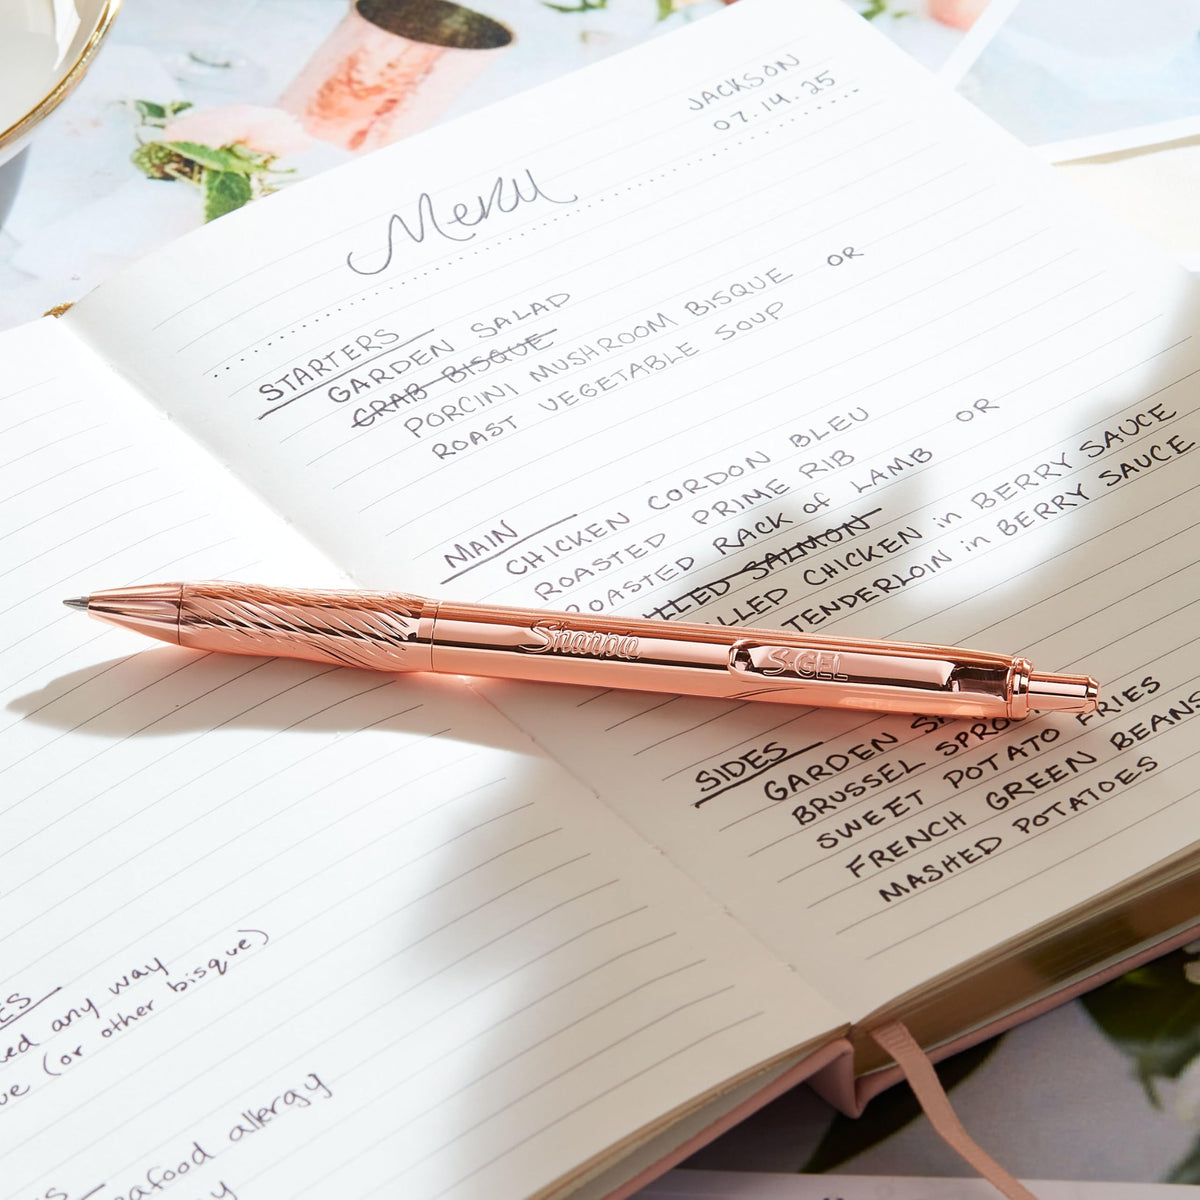 JACKSON
07.14.25
Menu
STARTERS
GARDEN SALAD
CRAB BISQUE
PORCINI MUSHROOM BISQUE OR
ROAST VEGETABLE SOUP
MAIN
CHICKEN CORDON BLEU
ROASTED PRIME RIB OR
ROASTED RACK of LAMB
SALMON
CHICKEN in BERRY SAUCE
TENDERLOIN in BERRY SAUCE
Sharpie
S·GEL
SIDES
GARDEN
BRUSSEL
SWEET POTATO FRIES
FRENCH GREEN BEANS
MASHED POTATOES
any way
(or other bisque)
allergy